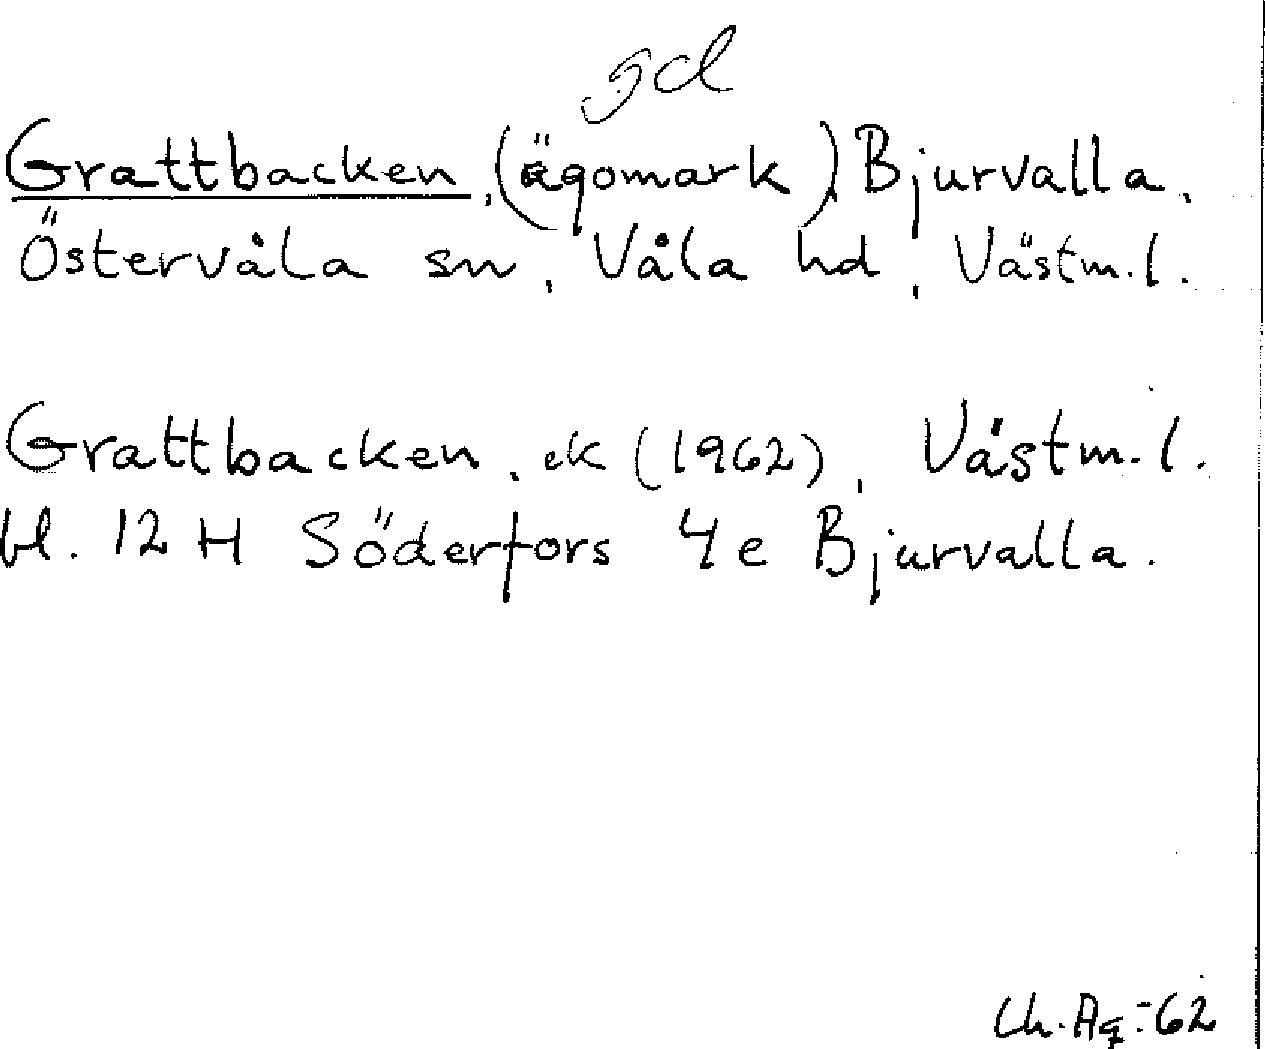 gd
Grattbacken, (ägomark) Bjurvalla,
Östervåla sn, Våla hd, Västm.l.
Grattbacken, ek (1962), Västm.l.
bl. 12 H Söderfors 4e Bjurvalla.
Ch. Ag -62